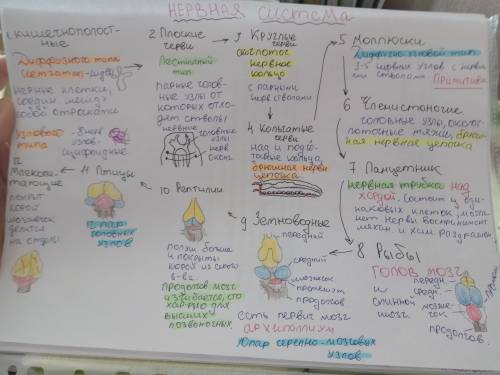 НЕРВНАЯ система
1. кишечнополост-
ные
Диффузного типа
(сетчатая)
нервные клетки,
соедин между
собой отростками
Узлового
типа
8 нерв
узлов
сцифоидные
2 Плоские
черви
Лестничный
тип
парные голов-
ные узлы от
которых отхо-
дят стволы
нервные
головные
узлы
нерв
оконч.
3 Круглые
черви
окологлот
нервное
кольцо
с парными
нерв стволами
4 Кольчатые
черви
над и подгло-
точные кольца,
брюшная нервн
цепочка
5 Моллюски
Диффузно узловой тип
3-5 нервных узлов с нервн
ми стволами
6 Членистоногие
головные узлы, окологл
лоточные тяжи, брюш
ная нервная цепочка
7 Ланцетник
нервная трубка над
хордой. Состоит из один
наковых клеток, может
нерв воспринимат
механ. и хим. раздражен
8 Рыбы
ГОЛОВ МОЗГ
и
спинной
мозг.
передн
средн
мозже-
чок
продолгов.
9 Земноводные
передний
средний
мозжечок
промежут
продолгов
есть первич мозг
архипаллиум
10 пар черепно-мозговых
узлов
10 Рептилии
полуш больше
и покрыты
корой из серого
в-ва.
продолгов мозг
изгибается, что
хар-но для
высших
позвоночных.
11 Птицы
12 пар
головных
узлов
12
Млекопи-
тающие
покрыт
корой
мозжечок
делится
на отделы